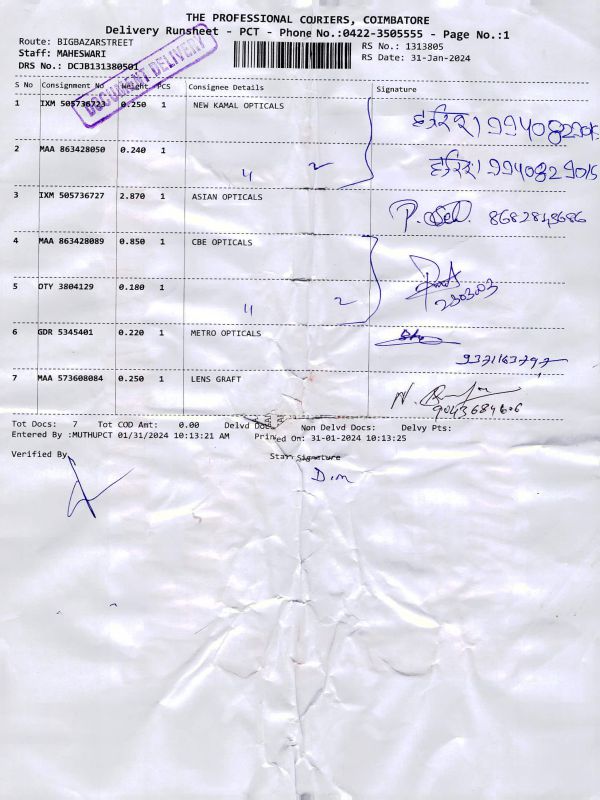 THE PROFESSIONAL COURIERS, COIMBATORE
Delivery Runsheet - PCT - Phone No.:0422-3505555 - Page No.:1
Route: BIGBAZARSTREET
RS No.: 1313805
Staff: MAHESWARI
RS Date: 31-Jan-2024
DRS No.: DCJB131380501
DOCUMENT DELIVERY
S No Consignment No Weight PCS Consignee Details Signature
1 IXM 505736723 0.250 1 NEW KAMAL OPTICALS
2 MAA 863428050 0.240 1 " 2
3 IXM 505736727 2.870 1 ASIAN OPTICALS 8682843686
4 MAA 863428089 0.850 1 CBE OPTICALS
5 OTY 3804129 0.180 1 " 2
6 GDR 5345401 0.220 1 METRO OPTICALS
7 MAA 573608084 0.250 1 LENS GRAFT
Tot Docs: 7 Tot COD Amt: 0.00 Delvd Docs: Non Delvd Docs: Delvy Pts:
Entered By :MUTHUPCT 01/31/2024 10:13:21 AM Printed On: 31-01-2024 10:13:25
Verified By
Staff Signature